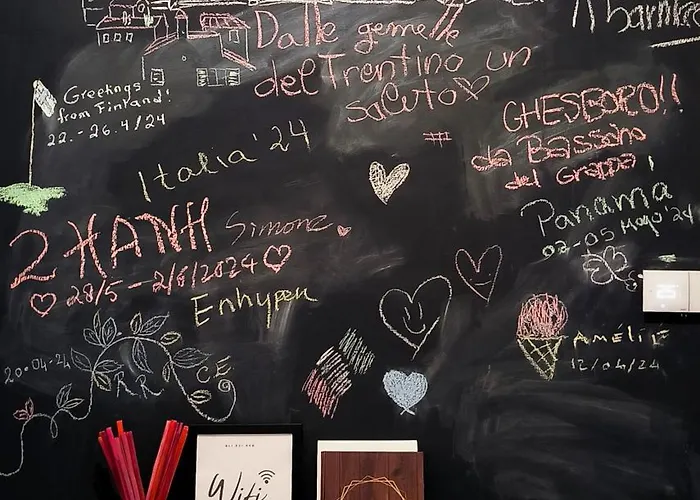 Dalle gemelle
del Trentino un
saluto
Greetings
from Finland!
22.-26.4/24
GHESBORO!!
da Bassano
del Grappa!
Italia '24
Panama
02-05 Mayo '24
2 HANH
Simone
28/5-2/6/2024
Enhypen
AMÉLIE
12/04/24
20-04-24
R R
CE
Wifi